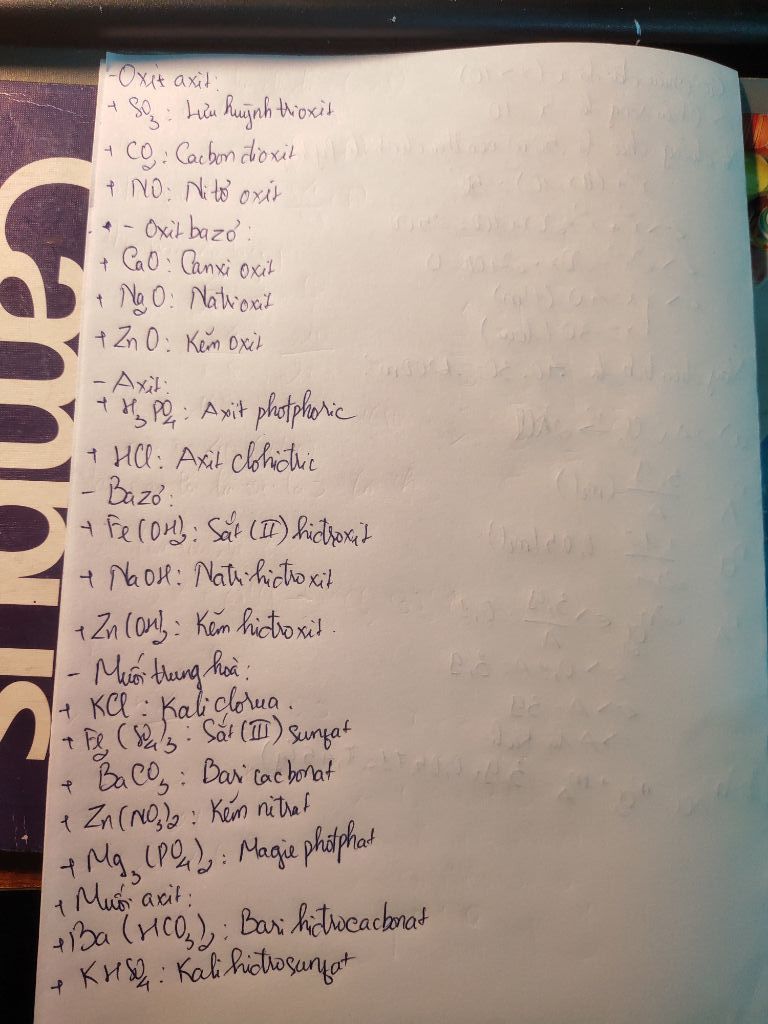 Cambus
- Oxit axit:
+ SO3: Lưu huỳnh trioxit
+ CO2: Cacbon đioxit
+ NO: Nitơ oxit
+ - Oxit bazơ:
+ CaO: Canxi oxit
+ Na2O: Natri oxit
+ ZnO: Kẽm oxit
- Axit:
+ H3PO4: Axit photphoric
+ HCl: Axit clohiđric
- Bazơ:
+ Fe(OH)2: Sắt (II) hiđroxit
+ NaOH: Natri hiđroxit
+ Zn(OH)2: Kẽm hiđroxit.
- Muối trung hoà:
+ KCl: Kali clorua.
+ Fe2(SO4)3: Sắt (III) sunfat
+ BaCO3: Bari cacbonat
+ Zn(NO3)2: Kẽm nitrat
+ Mg3(PO4)2: Magie photphat
+ Muối axit:
+ Ba(HCO3)2: Bari hiđrocacbonat
+ KHSO4: Kali hiđrosunfat